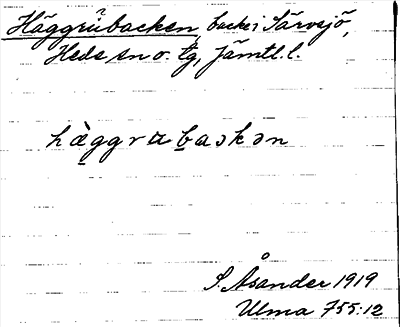 Häggrûbacken, backe i Särvsjö,
Hede sn o. tg, Jämtl. l.
hæ̀ggrʉbakən
S. Åsander 1919
Ulma 755:12